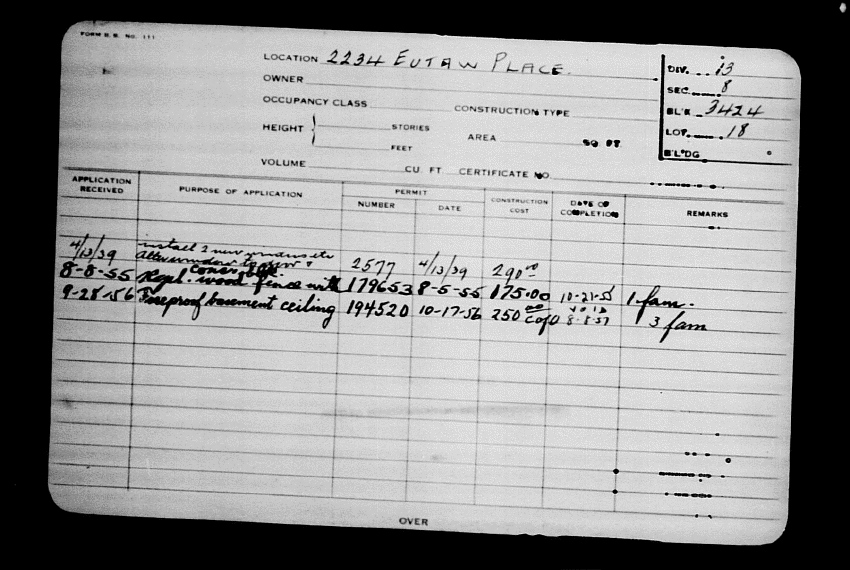 FORM B.B. NO. 111
LOCATION 2234 EUTAW PLACE.
DIV. 13
OWNER
SEC. 8
OCCUPANCY CLASS CONSTRUCTION TYPE
BLK 3424
HEIGHT STORIES AREA SQ. FT.
LOT 18
FEET
BLDG
VOLUME CU. FT. CERTIFICATE NO.
APPLICATION RECEIVED PURPOSE OF APPLICATION PERMIT NUMBER DATE CONSTRUCTION COST DATE OF COMPLETION REMARKS
install 2 new windows etc
4/13/39 Alter window to door & 2577 4/13/39 290.00
8-8-55 Repl. wood fence with conc. blk. 179653 8-5-55 175.00 10-21-55 1 fam.
9-28-56 Fireproof basement ceiling 194520 10-17-56 250.00 C of O VOID 8-8-57 3 fam
OVER